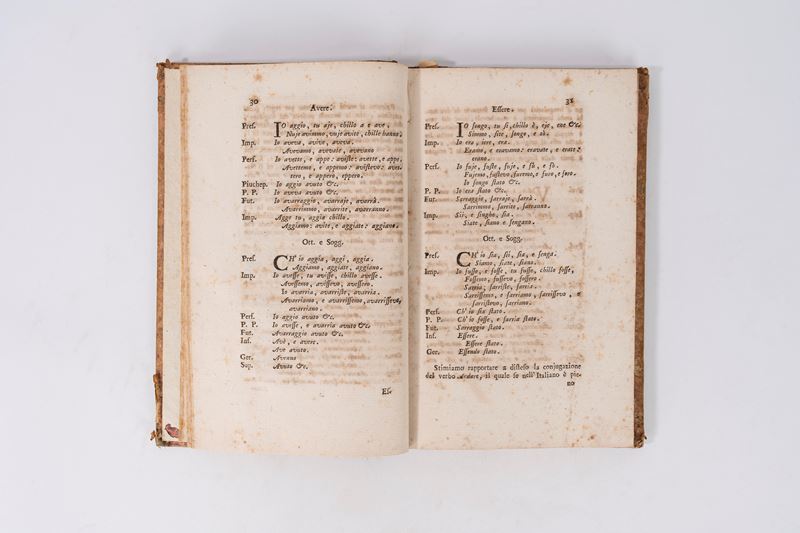 30
Avere.
Pres. IO aggio, tu aje, chillo a e ave.
Nuje avimmo, vuje avite, chille hanno.
Imp. Io aveva, avive, aveva.
Avevamo, avevate, avevano
Perf. Io avette, e appe: aviste: avette, e appe.
Avettemo, e appemo: avistevo: avet-
tero, e appero, eppero.
Piuchep. Io aggio avuto &c.
P. P. Io aveva avuto &c.
Fut. Io avarraggio, avarraje, avarrà.
Avarrimmo, avarrite, avarranno.
Imp. Agge tu, aggia chillo.
Aggiamo: avite, e aggiate: aggiano.
Ott. e Sogg.
Pres. CH' io aggia, aggi, aggia.
Aggiamo, aggiate, aggiano.
Imp. Io avesse, tu avisse, chillo avesse.
Avessemo, avissevo, avessero.
Io avarria, avarriste, avarria.
Avarriamo, e avarrissemo, avarrissevo,
avarriano.
Perf. Io aggio avuto &c.
P. P. Io avesse, e avarria avuto &c.
Fut. Avarraggio avuto &c.
Inf. Avè, e avere.
Ave avuto.
Ger. Avenno
Sup. Avuto &c.
Ess-
31
Essere.
Pres. IO songo, tu si, chillo è, eje, ene &c.
Simmo, site, songo, e
Imp. Io era, iere, era.
Erano, e eravamo: eravate, e erate:
erano.
Perf. Io fuje, fuste, fuje, e fò, e fo.
Fujemo, fustevo, furono, e fure, e foro.
Io songo stato &c.
P. P. Io era stato &c.
Fut. Sarraggio, sarraje, sarrà.
Sarrimmo, sarrite, sarranno.
Imp. Sii, e singhe, sia.
Siate, siano e sengano.
Ott. e Sogg.
Pres. CH' io sia, sii, sia, e senga.
Siamo, siate, siano.
Imp. Io fusse, e fosse, tu fusse, chillo fosse,
Fossemo, fussevo, fossero.
Sarria, sarriste, sarria.
Sarrissemo, e sarriamo, sarrissevo, e
sarristevo, sarriano.
Perf. Ch' io sia stato.
P. P. Ch' io fosse, e sarria stato.
Fut. Sarraggio stato.
Inf. Essere.
Essere stato.
Ger. Essendo stato.
Stimiamo rapportare a disteso la conjugazione
del verbo Andare, il quale se nell' Italiano è pie-
no